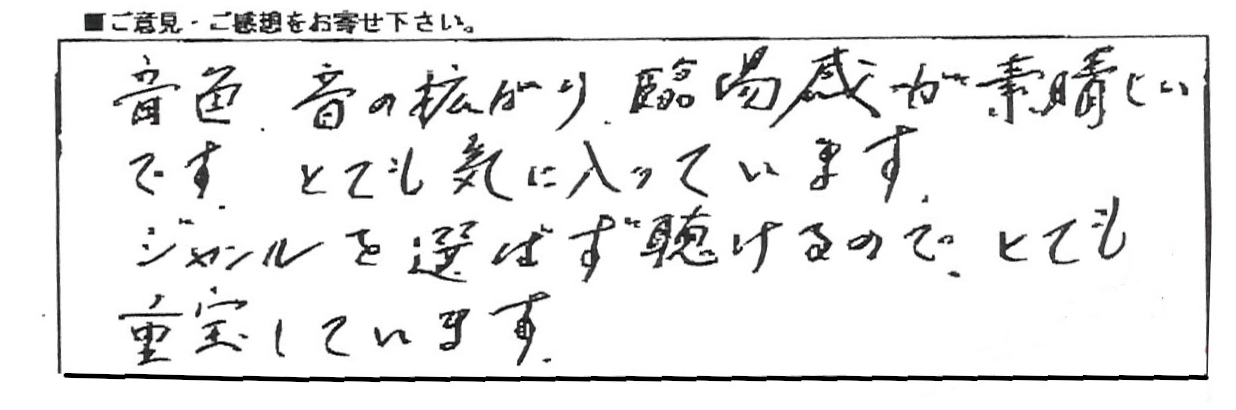 ■ご意見・ご感想をお寄せ下さい。
音色、音の拡がり、臨場感が素晴しい
です。とても気に入っています。
ジャンルを選ばず聴けるので、とても
重宝しています。